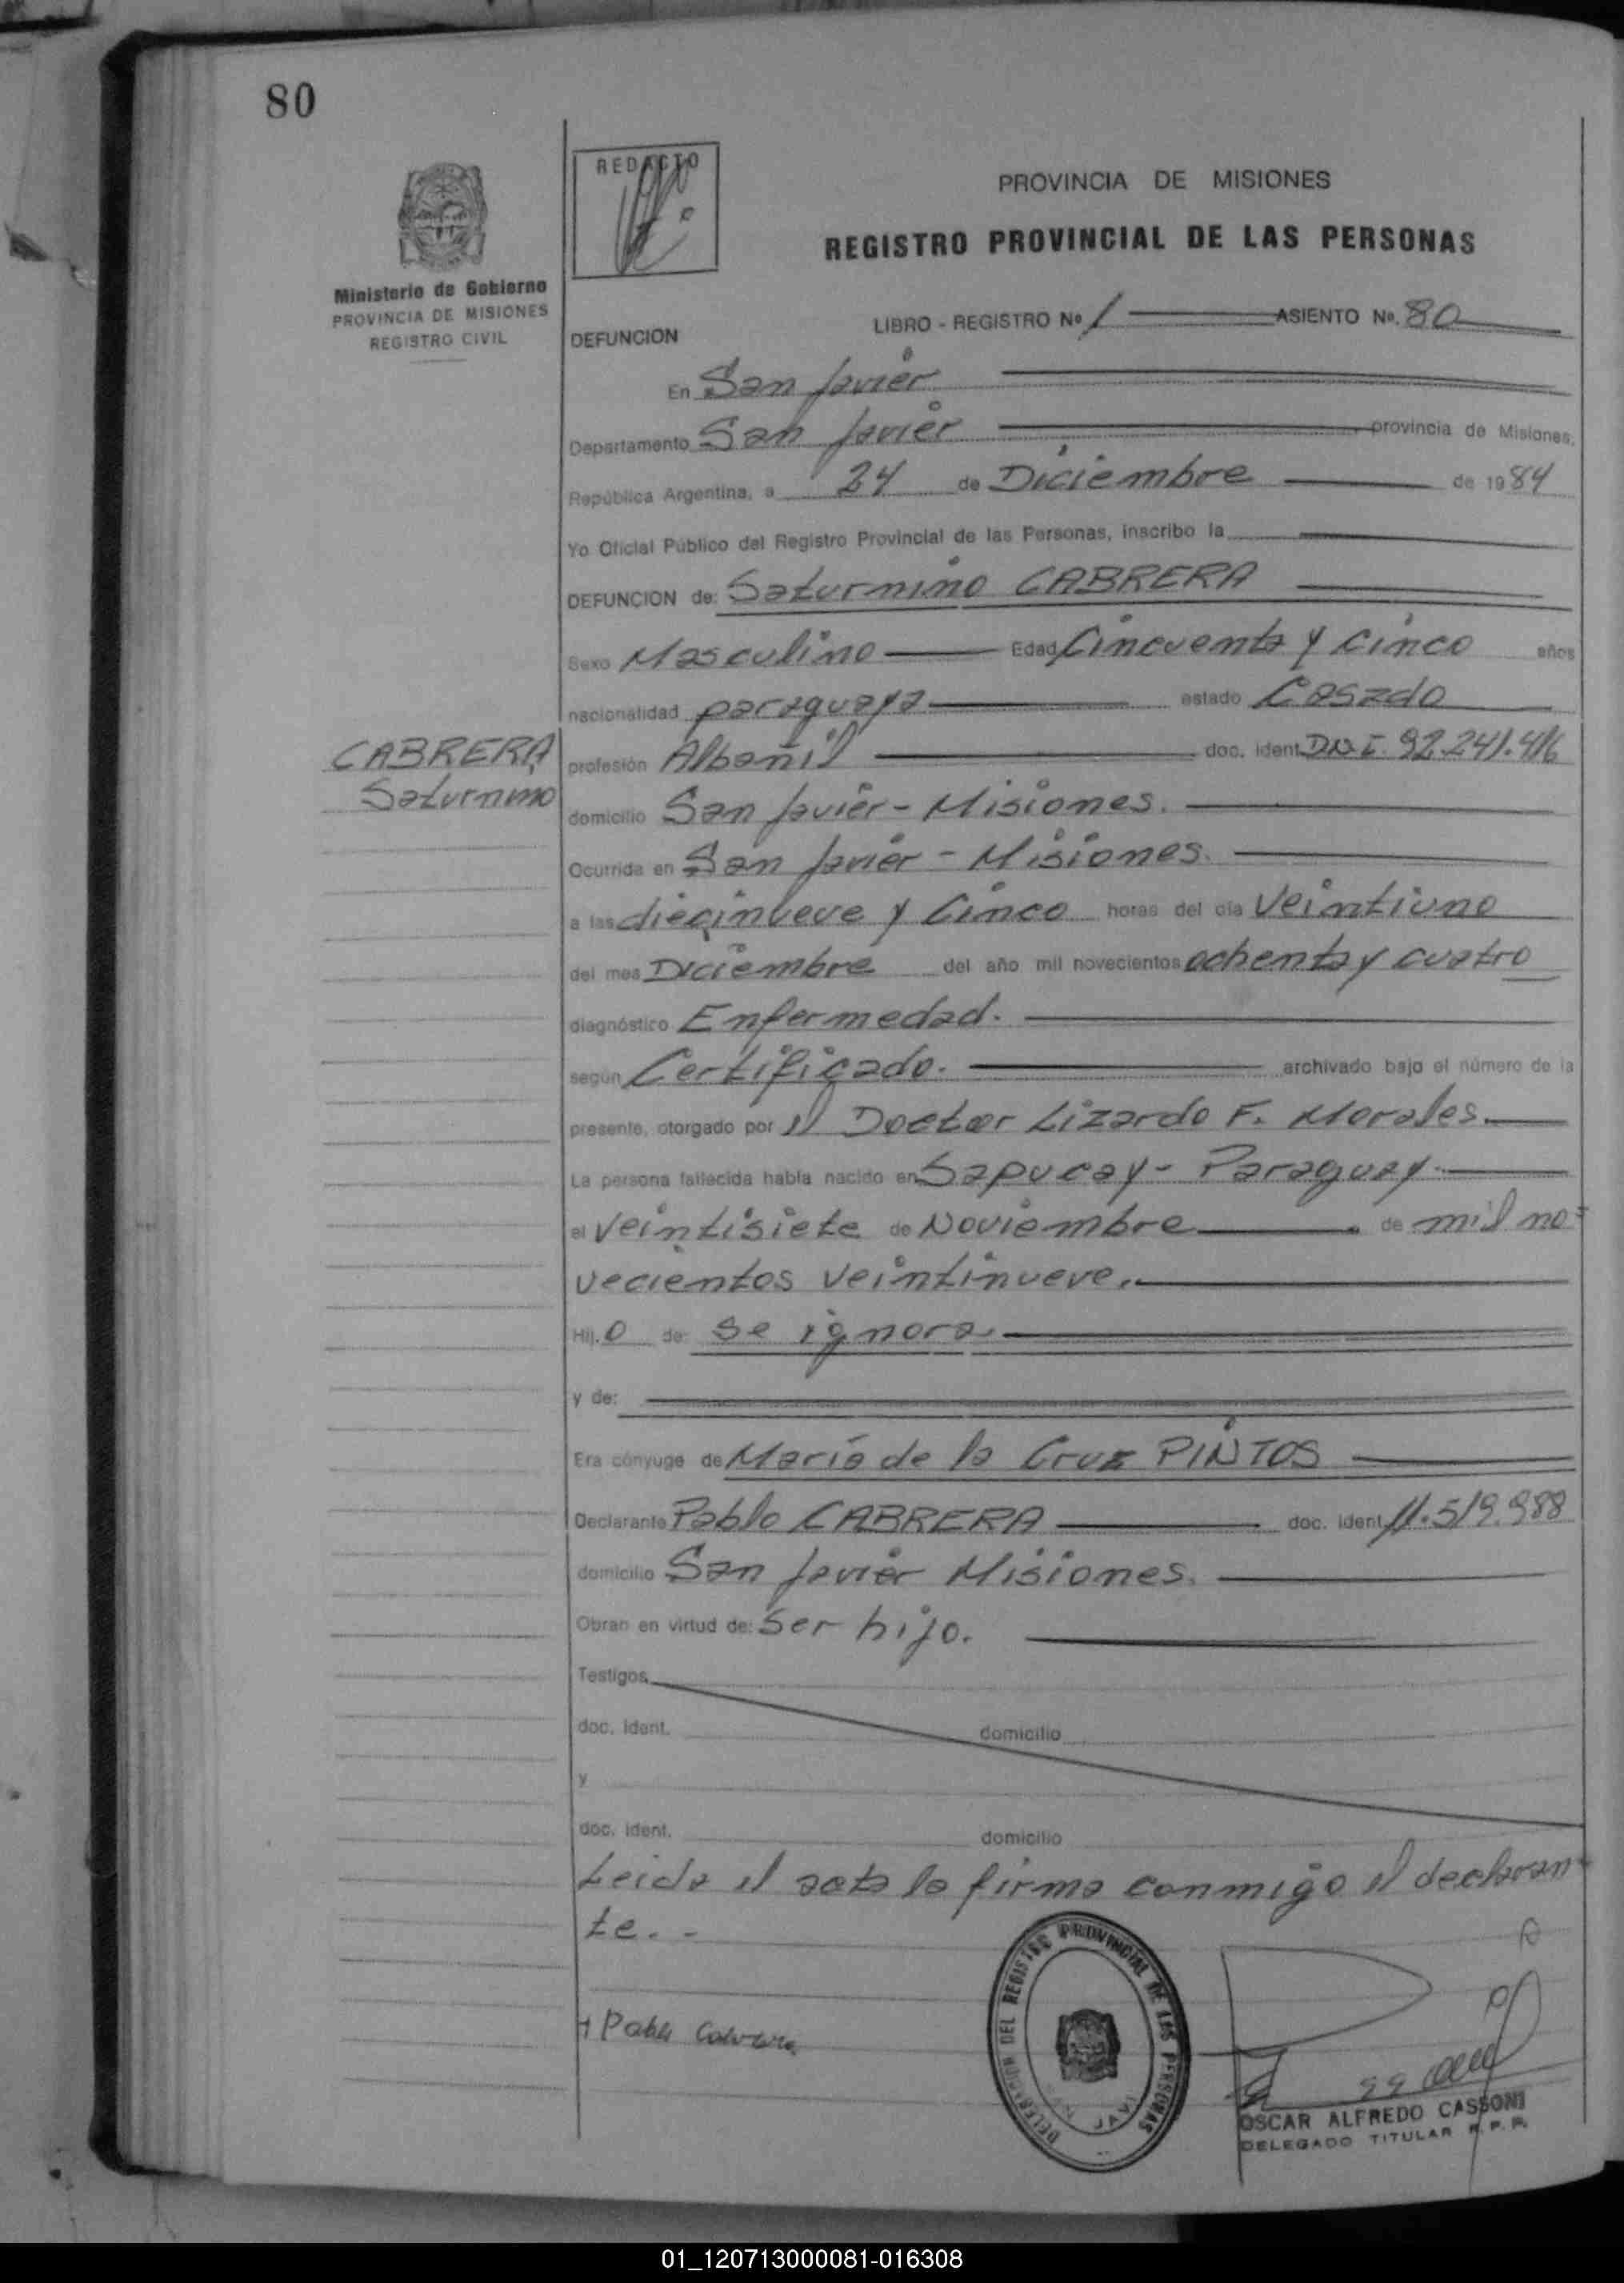 80
REDACTO
PROVINCIA DE MISIONES
REGISTRO PROVINCIAL DE LAS PERSONAS
Ministerio de Gobierno
PROVINCIA DE MISIONES
REGISTRO CIVIL
LIBRO - REGISTRO Nº 1 ASIENTO Nº. 80
DEFUNCION
En San Javier
Departamento San Javier provincia de Misiones,
República Argentina, a 24 de Diciembre de 1984
Yo Oficial Público del Registro Provincial de las Personas, inscribo la
DEFUNCION de: Saturnino CABRERA
Sexo Masculino Edad Cincuenta y Cinco años
nacionalidad paraguaya estado Casado
CABRERA
Saturnino
profesión Albañil doc. ident. D.N.I. 92.241.416
domicilio San Javier - Misiones.
Ocurrida en San Javier - Misiones.
a las diecinueve y Cinco horas del día Veintiuno
del mes Diciembre del año mil novecientos ochenta y cuatro
diagnóstico Enfermedad.
según Certificado. archivado bajo el número de la
presente, otorgado por el Doctor Lizardo F. Morales.
La persona fallecida había nacido en Sapucay - Paraguay.
el Veintisiete de Noviembre de mil no=
vecientos veintinueve.
Hij.o de: se ignora.
y de:
Era cónyuge de María de la Cruz PINTOS
Declarante Pablo CABRERA doc. ident. 11.519.988
domicilio San Javier Misiones.
Obran en virtud de: Ser hijo.
Testigos
doc. ident. domicilio
y
doc. ident. domicilio
Leida el acta la firma conmigo el declaran=
te. -
+ Pablo Cabrera
DELEGACION DEL REGISTRO PROVINCIAL DE LAS PERSONAS
OSCAR ALFREDO CASSONI
DELEGADO TITULAR R. P. P.
01_120713000081-016308